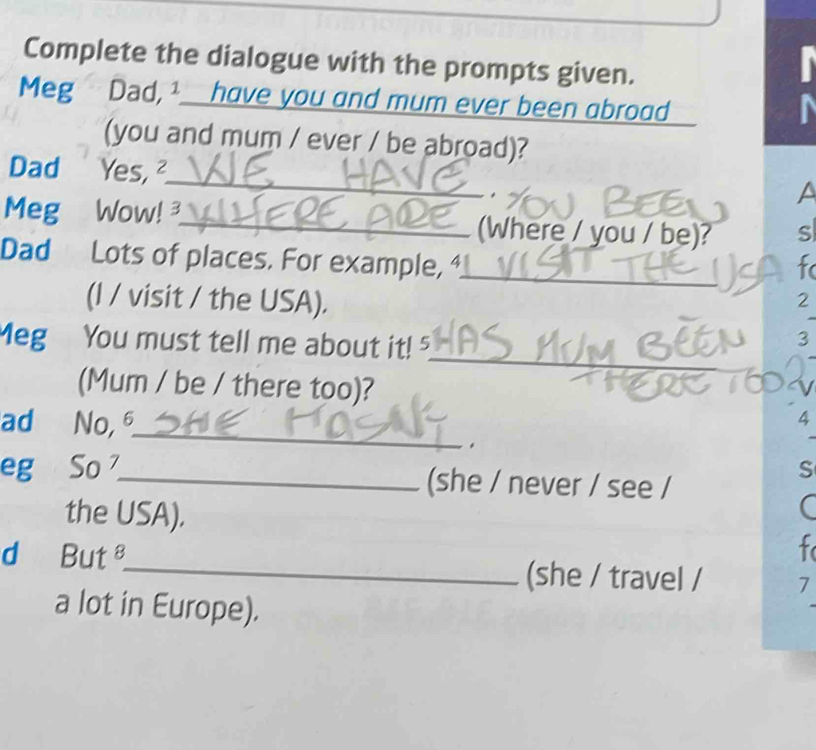 Complete the dialogue with the prompts given.
Meg Dad, 1 have you and mum ever been abroad
(you and mum / ever / be abroad)?
Dad Yes, 2 WE HAVE .
Meg Wow! 3 WHERE ARE YOU BEEN (Where / you / be)?
Dad Lots of places. For example, 4 I VISIT THE USA
(I / visit / the USA).
Meg You must tell me about it! 5 HAS MUM BEEN
THERE TOO?
(Mum / be / there too)?
ad No, 6 SHE HASN'T .
eg So 7 (she / never / see /
the USA).
d But 8 (she / travel /
a lot in Europe).
A
s
fo
2
3
v
4
s
f
7